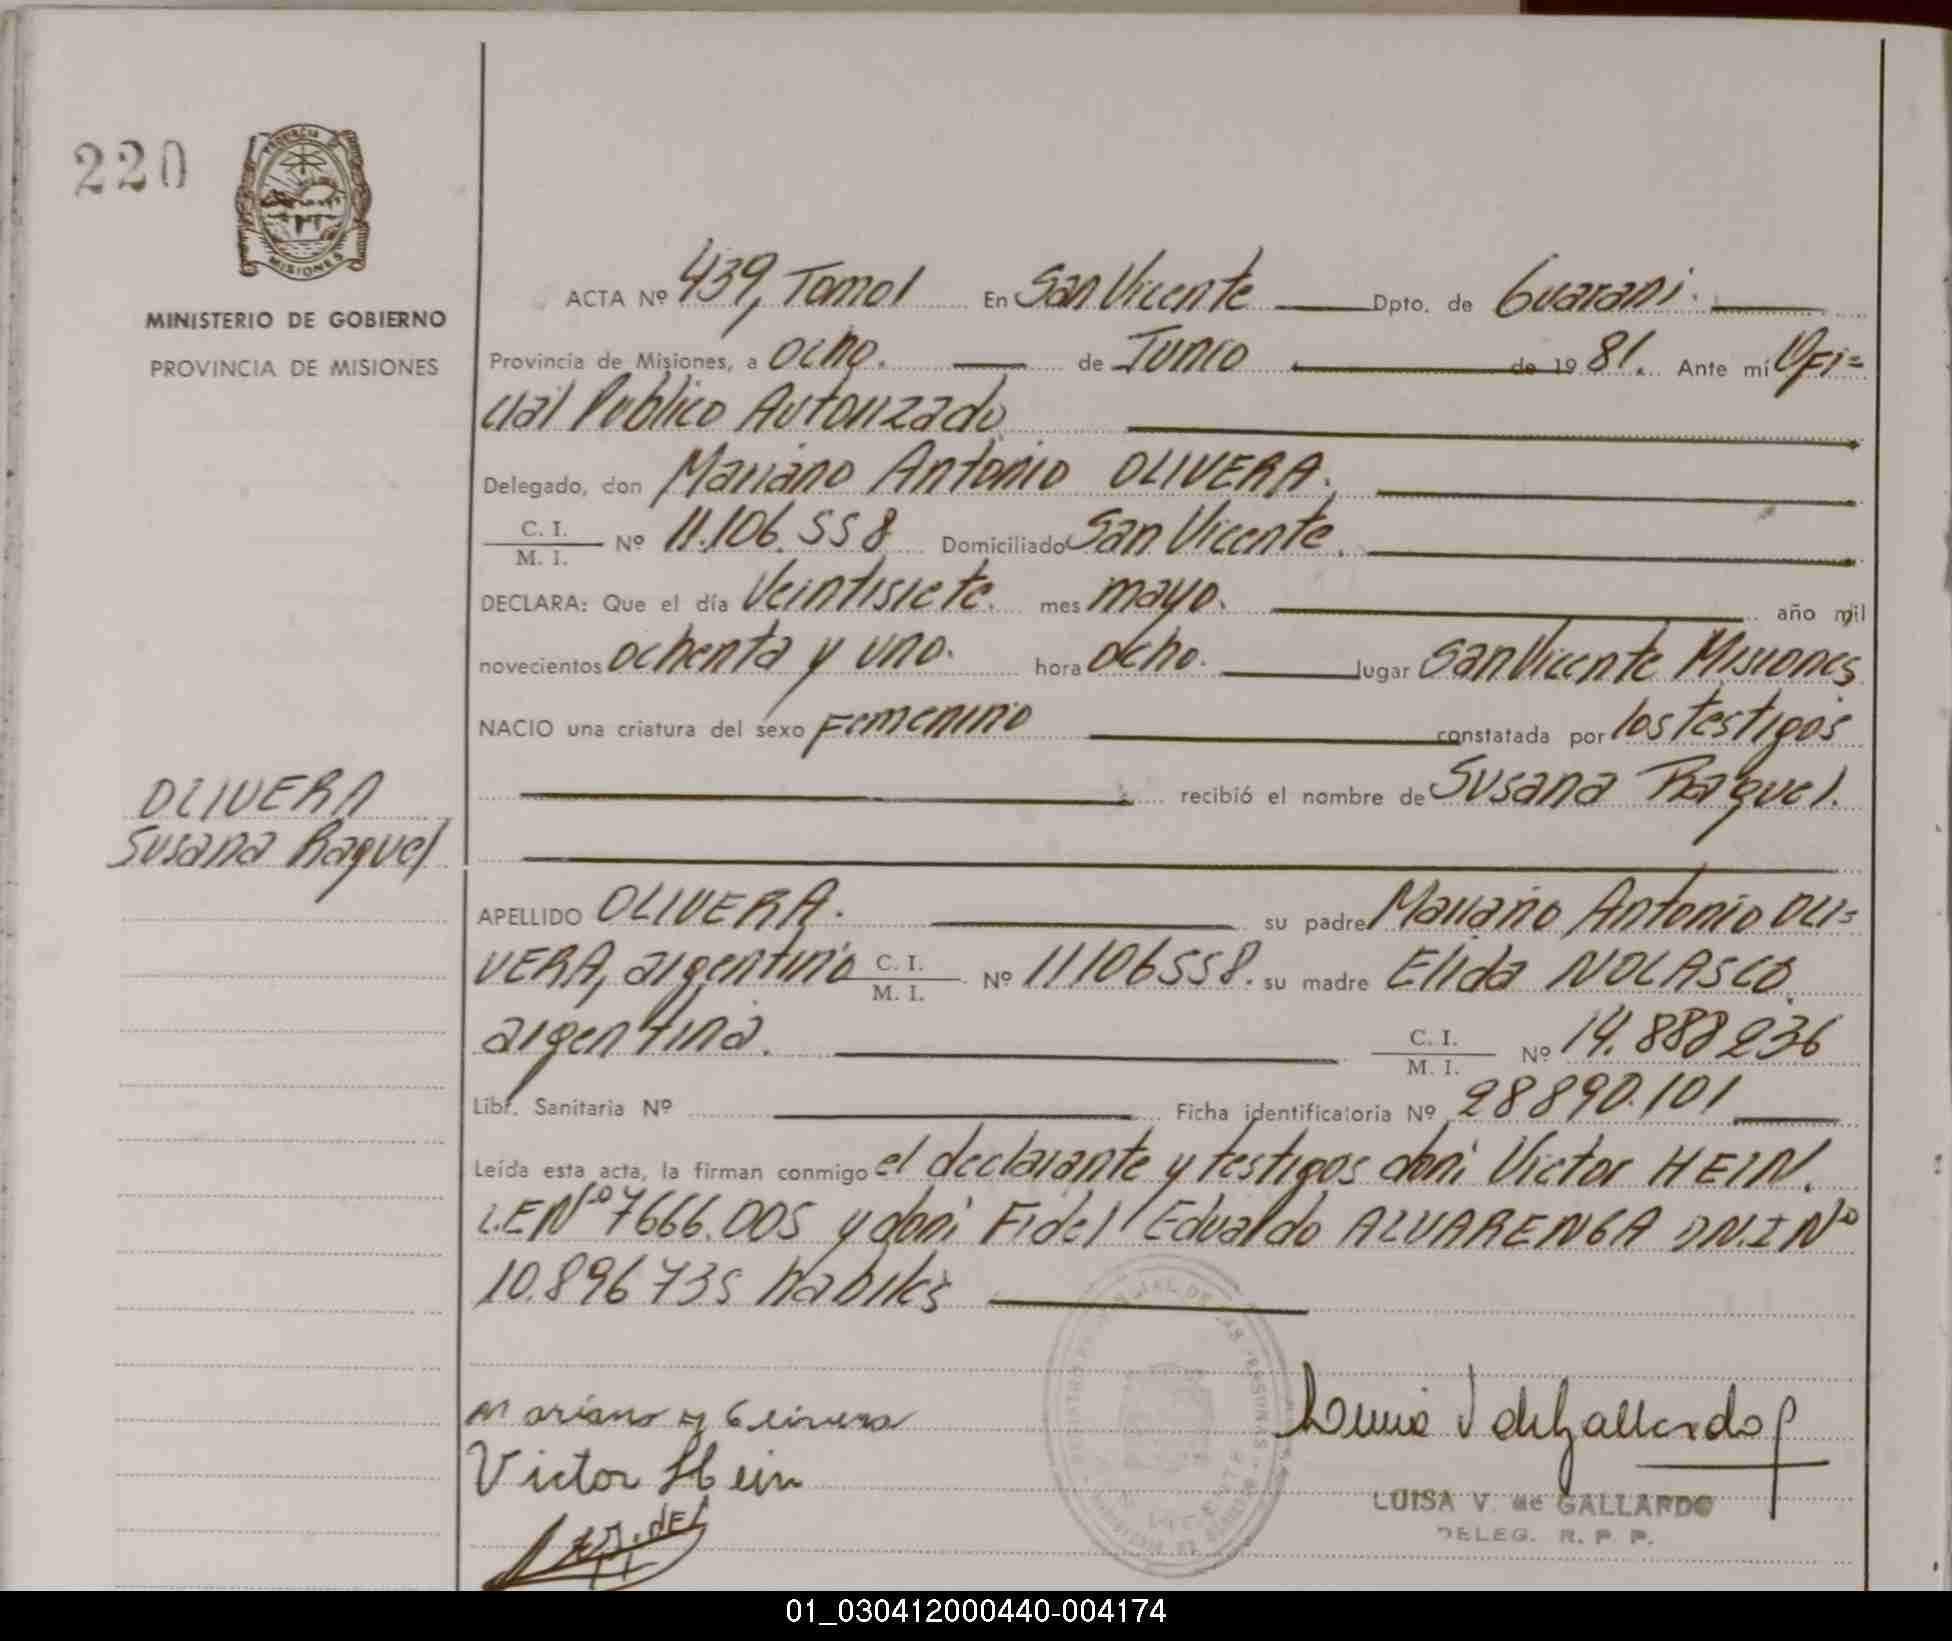 220
PROVINCIA
MISIONES
MINISTERIO DE GOBIERNO
PROVINCIA DE MISIONES
ACTA Nº 439, Tomo I En San Vicente Dpto. de Guarani.
Provincia de Misiones, a ocho. de Junio de 1981. Ante mí Ofi=
cial Publico Autorizado
Delegado, don Mariano Antonio OLIVERA.
C. I.
M. I. Nº 11.106.558 Domiciliado San Vicente.
DECLARA: Que el día Veintisiete. mes mayo. año mil
novecientos ochenta y uno. hora ocho. lugar San Vicente Misiones
NACIO una criatura del sexo Femenino constatada por los testigos
recibió el nombre de Susana Raquel.
OLIVERA
Susana Raquel
APELLIDO OLIVERA. su padre Mariano Antonio OLI=
VERA, argentino C. I. M. I. Nº 11106558. su madre Elida NOLASCO.
argentina. C. I. M. I. Nº 14.888236
Libr. Sanitaria Nº Ficha identificatoria Nº 28890.101
Leída esta acta, la firman conmigo el declarante y testigos don: Victor HEIN.
L.E Nº 7666.005 y don: Fidel Eduardo ALVARENGA D.N.I Nº
10.896735 habiles
Victor Hein
LUISA V. de GALLARDO
DELEG. R. P. P.
01_030412000440-004174